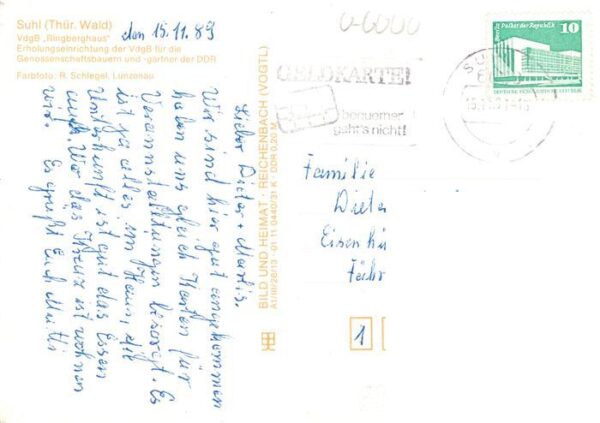 Suhl (Thür. Wald)
VdgB „Ringberghaus"
Erholungseinrichtung der VdgB für die
Genossenschaftsbauern und -gärtner der DDR
Farbfoto: R. Schlegel, Lunzenau
den 15.11.89
Lieber Dieter + Marlis.
Wir sind hier gut angekommen
haben uns gleich Karten für
Veranstaltungen besorgt. Es
ist ja alles im Haus, die
Unterkunft ist gut das Essen
auch. Wo das Kreuz ist wohnen
wir. Es grüßt Euch Mutti
BILD UND HEIMAT · REICHENBACH (VOGTL)
A1/III/26/13 01 11 0440/31 K · DDR 0,20 M
0-6000
GELDKARTE!
bequemer
geht's nicht!
Berlin, Palast der Republik 10
DEUTSCHE DEMOKRATISCHE REPUBLIK
Familie
Dieter
Eisenhü
Fähr
1